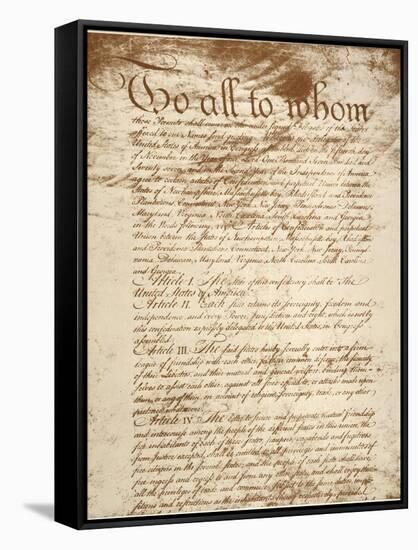 To all to whom
these Presents shall come, we the under signed Delegates of the States
affixed to our Names send greeting. Whereas the Delegates of the
United States of America in Congress assembled did on the fifteenth day
of November in the Year of our Lord One Thousand Seven Hundred and
Seventy seven, and in the Second Year of the Independence of America
agree to certain articles of Confederation and perpetual Union between the
States of Newhampshire, Massachusetts-bay, Rhodeisland and Providence
Plantations, Connecticut, New York, New Jersey, Pennsylvania, Delaware,
Maryland, Virginia, North Carolina, South Carolina and Georgia
in the Words following, viz. Articles of Confederation and perpetual
Union between the States of Newhampshire, Massachusetts-bay, Rhodeisland
and Providence Plantations, Connecticut, New York, New Jersey, Pennsyl-
vania, Delaware, Maryland, Virginia, North Carolina, South Carolina
and Georgia.
Article I. The Stile of this confederacy shall be "The
United States of America."
Article II. Each state retains its sovereignty, freedom and
independence, and every Power, Jurisdiction and right, which is not by
this confederation expressly delegated to the United States, in Congress
assembled.
Article III. The said states hereby severally enter into a firm
league of friendship with each other, for their common defence, the security
of their Liberties, and their mutual and general welfare, binding them-
selves to assist each other, against all force offered to, or attacks made upon
them, or any of them, on account of religion, sovereignty, trade, or any other
pretence whatever.
Article IV. The better to secure and perpetuate mutual friendship
and intercourse among the people of the different states in this union, the
free inhabitants of each of these states, paupers, vagabonds and fugitives
from Justice excepted, shall be entitled to all privileges and immunities of
free citizens in the several states; and the people of each state shall have
free ingress and regress to and from any other state, and shall enjoy therein
all the privileges of trade and commerce, subject to the same duties, impo-
sitions and restrictions as the inhabitants thereof respectively, provided